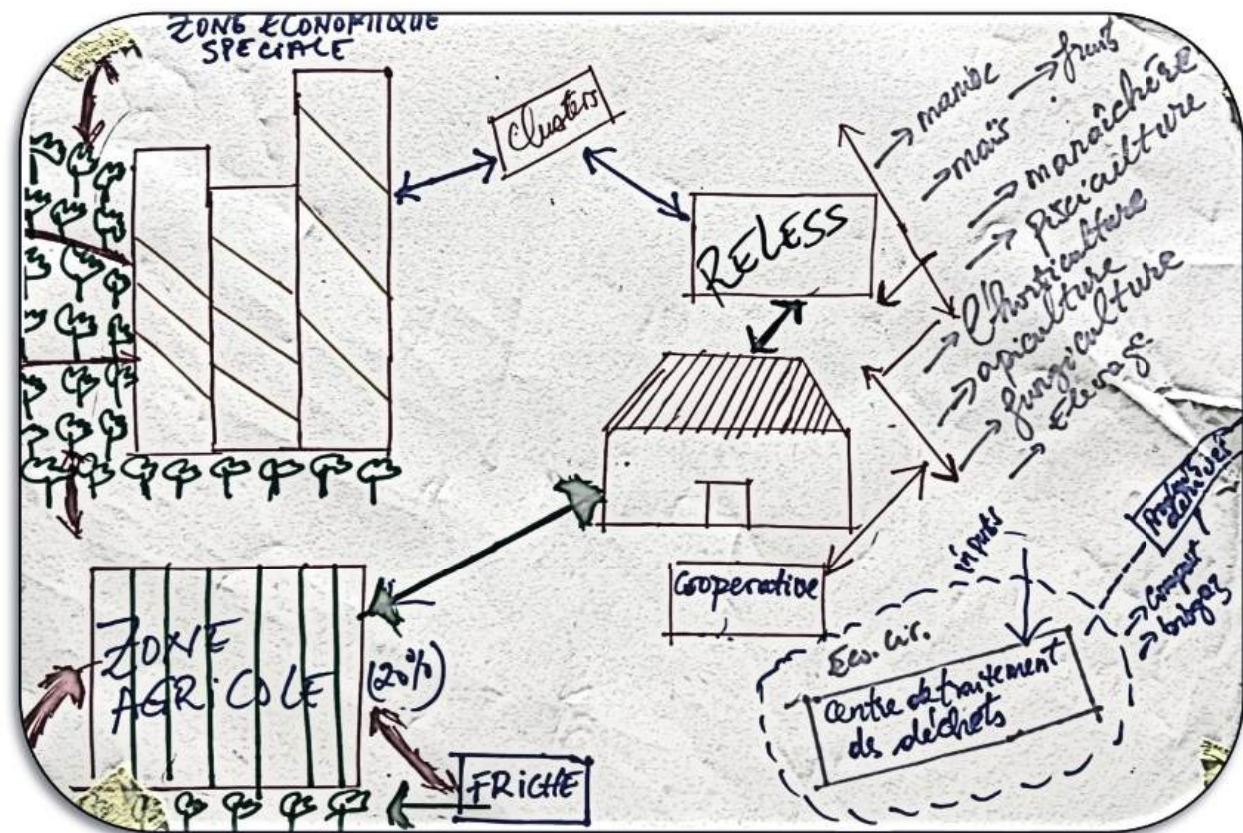 ZONE ECONOMIQUE
SPECIALE
Clusters
RELESS
→ manioc
→ fruits
→ maïs
→ maraîchère
→ pisciculture
→ l'horticulture
→ apiculture
→ fungiculture
→ Elevage
Cooperative
ZONE
AGRICOLE
(20%)
FRICHE
inputs
Eco. cir.
Centre de traitement
des déchets
Produits
dérivés
→ Compost
→ biogaz